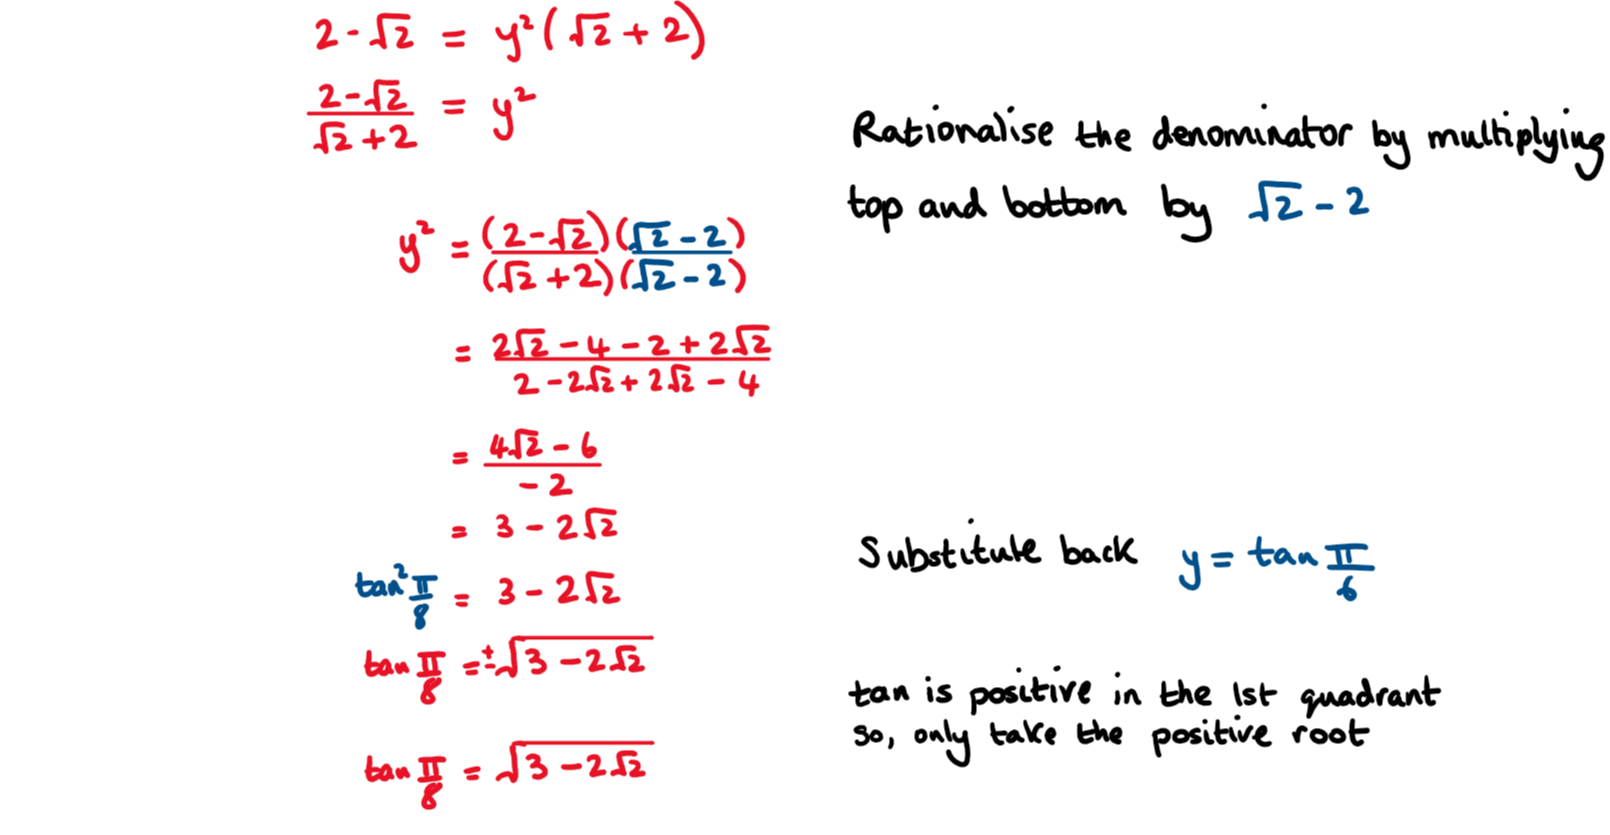 2 - √2 = y²(√2 + 2)
(2 - √2)/(√2 + 2) = y²
Rationalise the denominator by multiplying
top and bottom by √2 - 2
y² = (2 - √2)(√2 - 2)/(√2 + 2)(√2 - 2)
= (2√2 - 4 - 2 + 2√2)/(2 - 2√2 + 2√2 - 4)
= (4√2 - 6)/(-2)
= 3 - 2√2
Substitute back y = tan π/6
tan² π/8 = 3 - 2√2
tan π/8 = ±√(3 - 2√2)
tan is positive in the 1st quadrant
so, only take the positive root
tan π/8 = √(3 - 2√2)